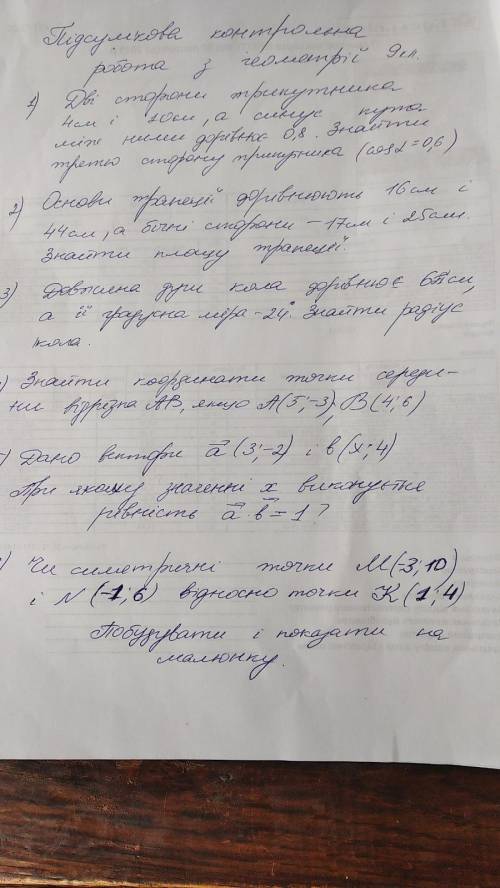 Підсумкова контрольна
робота з геометрії 9 кл.
1) Дві сторони трикутника
4см і 10см, а синус кута
між ними дорівнює 0,8. Знайти
третю сторону трикутника (cosα=0,6)
2) Основи трапеції дорівнюють 16см і
44см, а бічні сторони – 17см і 25см.
Знайти площу трапеції.
3) Довжина дуги кола дорівнює 6π см,
а її градусна міра – 24°. Знайти радіус
кола.
) Знайти координати точки середи-
ни відрізка AB, якщо A(5;-3), B(4;6)
) Дано вектори a (3;-2) і b (x;4)
При якому значенні x виконується
рівність a·b=1?
) Чи симетричні точки M(-3;10)
і N(-1;6) відносно точки K(1;4)
Побудувати і показати на
малюнку.